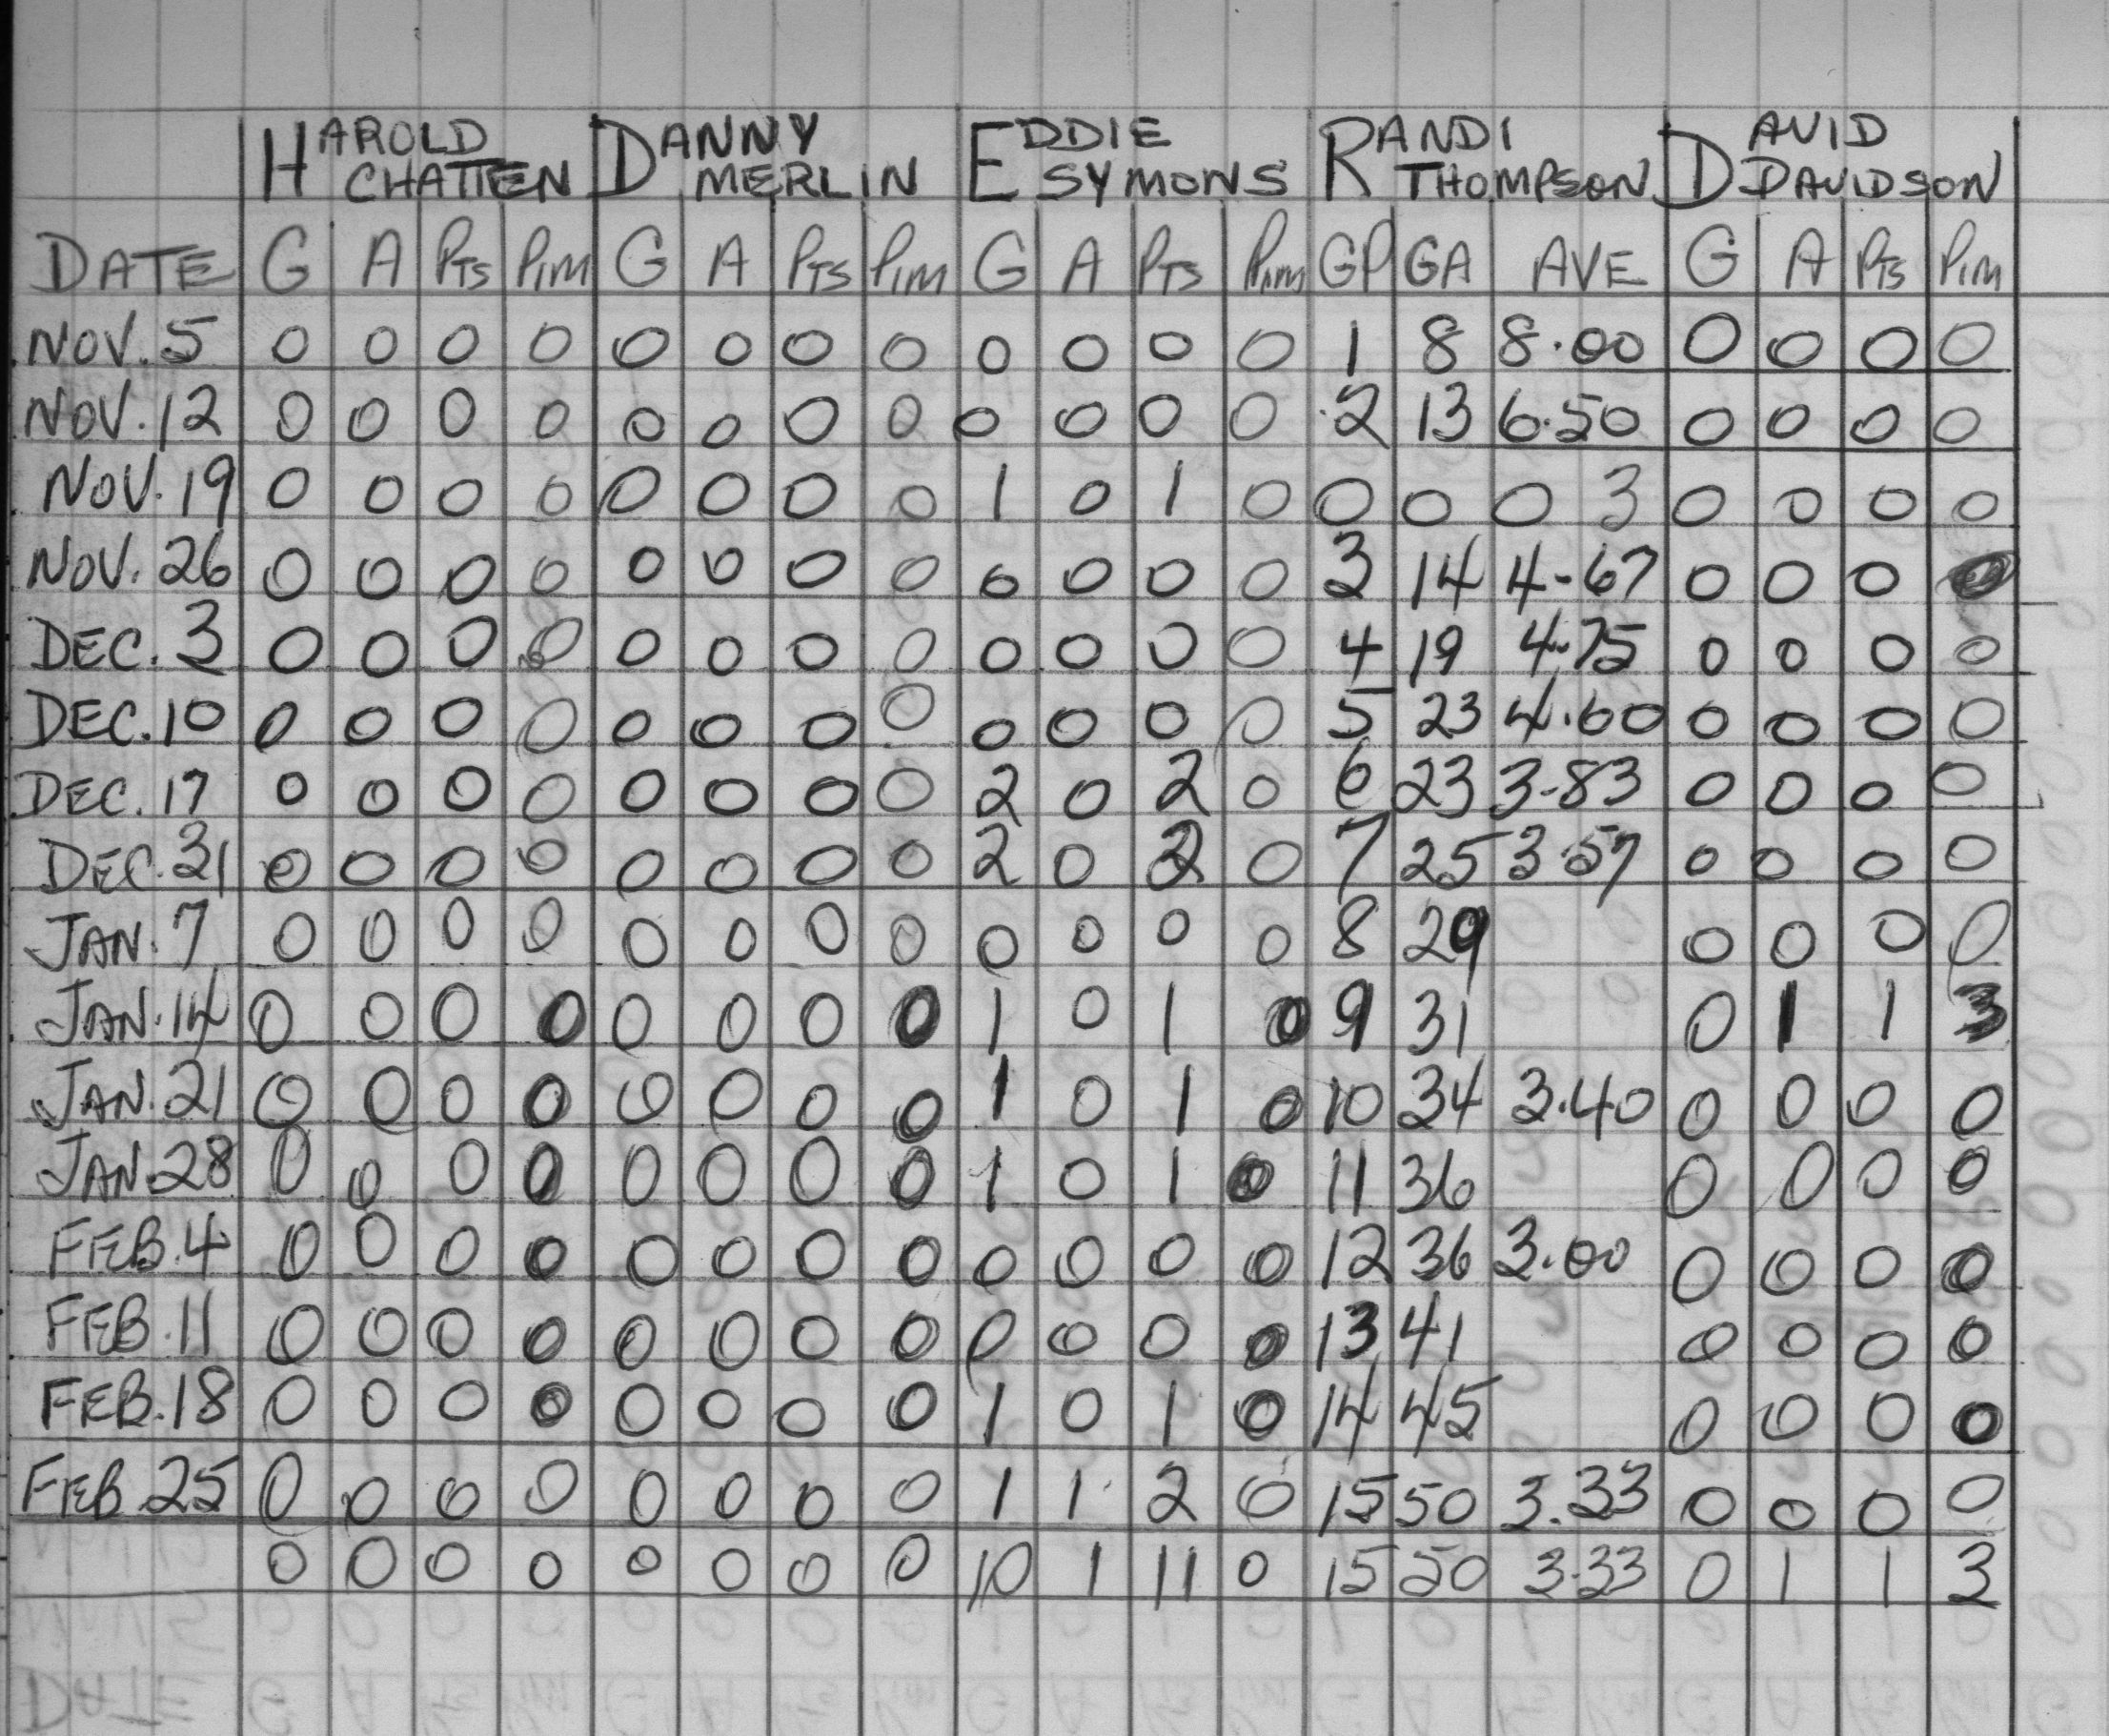 HAROLD CHATTEN DANNY MERLIN EDDIE SYMONS RANDI THOMPSON DAVID DAVIDSON
DATE G A PTS PIM G A PTS PIM G A PTS PIM GP GA AVE G A PTS PIM
NOV. 5 0 0 0 0 0 0 0 0 0 0 0 0 1 8 8.00 0 0 0 0
NOV. 12 0 0 0 0 0 0 0 0 0 0 0 0 2 13 6.50 0 0 0 0
NOV. 19 0 0 0 0 0 0 0 0 1 0 1 0 0 0 0 3 0 0 0 0
NOV. 26 0 0 0 0 0 0 0 0 0 0 0 0 3 14 4-67 0 0 0 0
DEC. 3 0 0 0 0 0 0 0 0 0 0 0 0 4 19 4.75 0 0 0 0
DEC. 10 0 0 0 0 0 0 0 0 0 0 0 0 5 23 4.60 0 0 0 0
DEC. 17 0 0 0 0 0 0 0 0 2 0 2 0 6 23 3-83 0 0 0 0
DEC. 31 0 0 0 0 0 0 0 0 2 0 2 0 7 25 3.57 0 0 0 0
JAN. 7 0 0 0 0 0 0 0 0 0 0 0 0 8 29 0 0 0 0
JAN. 14 0 0 0 0 0 0 0 0 1 0 1 0 9 31 0 1 1 3
JAN. 21 0 0 0 0 0 0 0 0 1 0 1 0 10 34 3.40 0 0 0 0
JAN. 28 0 0 0 0 0 0 0 0 1 0 1 0 11 36 0 0 0 0
FEB. 4 0 0 0 0 0 0 0 0 0 0 0 0 12 36 3.00 0 0 0 0
FEB. 11 0 0 0 0 0 0 0 0 0 0 0 0 13 41 0 0 0 0
FEB. 18 0 0 0 0 0 0 0 0 1 0 1 0 14 45 0 0 0 0
FEB. 25 0 0 0 0 0 0 0 0 1 1 2 0 15 50 3.33 0 0 0 0
0 0 0 0 0 0 0 0 10 1 11 0 15 50 3.33 0 1 1 3